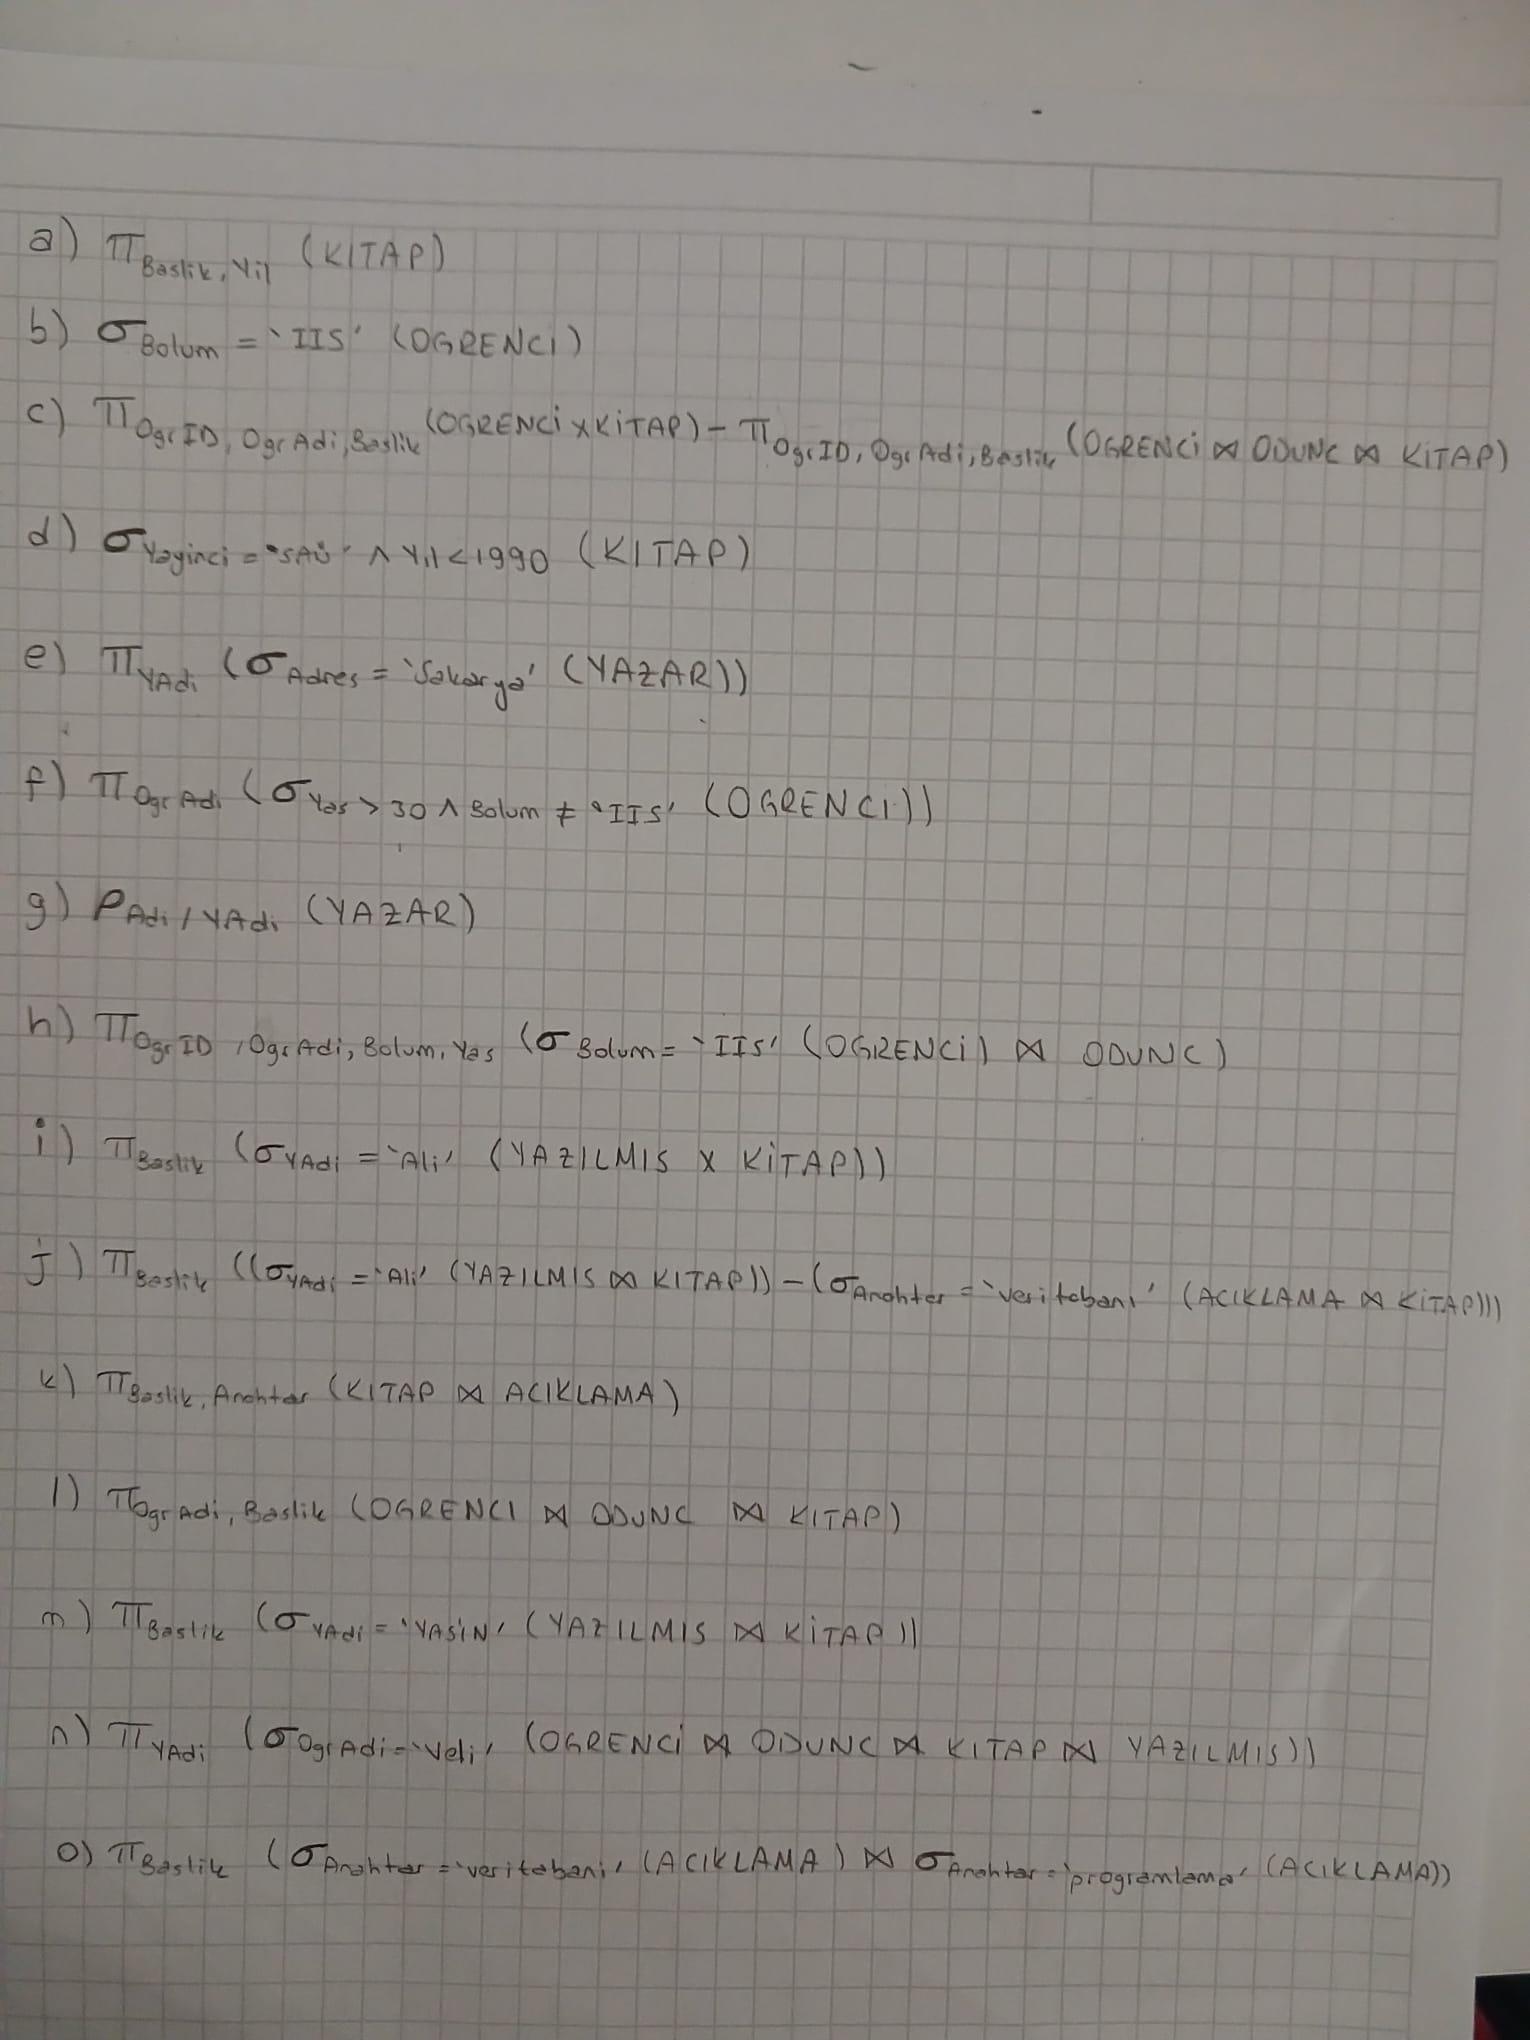 a) π Baslik, Yil (KITAP)
b) σ Bolum = 'IIS' (OGRENCI)
c) π OgrID, OgrAdi, Baslik (OGRENCİ x KİTAP) - π OgrID, OgrAdi, Baslik (OGRENCİ ⋈ ODUNC ⋈ KİTAP)
d) σ Yayinci = 'SAÜ' ∧ Yıl < 1990 (KITAP)
e) π YAdi (σ Adres = 'Sakarya' (YAZAR))
f) π OgrAdi (σ Yas > 30 ∧ Bolum ≠ 'IIS' (OGRENCI))
g) ρ Adi / YAdi (YAZAR)
h) π OgrID, OgrAdi, Bolum, Yas (σ Bolum = 'IIS' (OGRENCİ) ⋈ ODUNC)
i) π Baslik (σ YAdi = 'Ali' (YAZILMIS x KİTAP))
j) π Baslik ((σ YAdi = 'Ali' (YAZILMIS ⋈ KITAP)) - (σ Anahtar = 'veritabanı' (ACIKLAMA ⋈ KİTAP)))
k) π Baslik, Anahtar (KITAP ⋈ ACIKLAMA)
l) π OgrAdi, Baslik (OGRENCI ⋈ ODUNC ⋈ KITAP)
m) π Baslik (σ YAdi = 'YASİN' (YAZILMIS ⋈ KİTAP))
n) π YAdi (σ OgrAdi = 'Veli' (OGRENCİ ⋈ ODUNC ⋈ KITAP ⋈ YAZILMIS))
o) π Baslik (σ Anahtar = 'veritabani' (ACIKLAMA) ⋈ σ Anahtar = 'programlama' (ACIKLAMA))